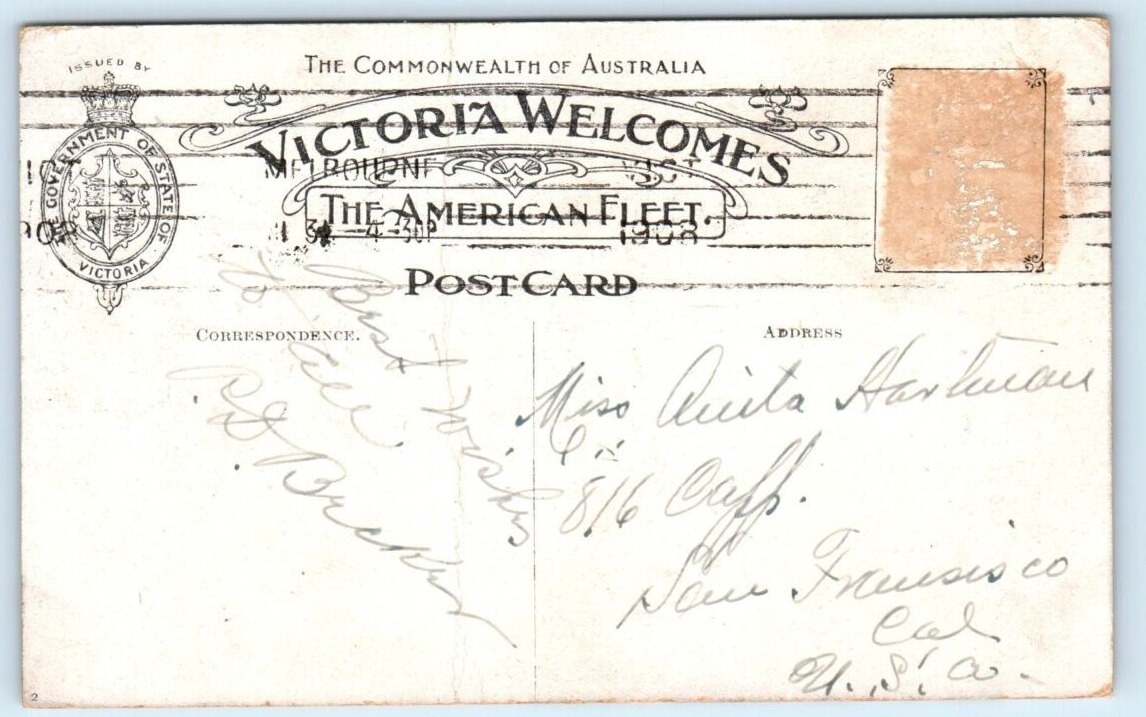 ISSUED BY
THE GOVERNMENT OF STATE OF
VICTORIA
THE COMMONWEALTH OF AUSTRALIA
VICTORIA WELCOMES
THE AMERICAN FLEET.
MELBOURNE VICT
4-30P 1908
POST CARD
CORRESPONDENCE.
ADDRESS
Best Wishes
to all
Miss Anita Hartman
816 Capp.
San Fransisco
Cal
U.S.a.
2